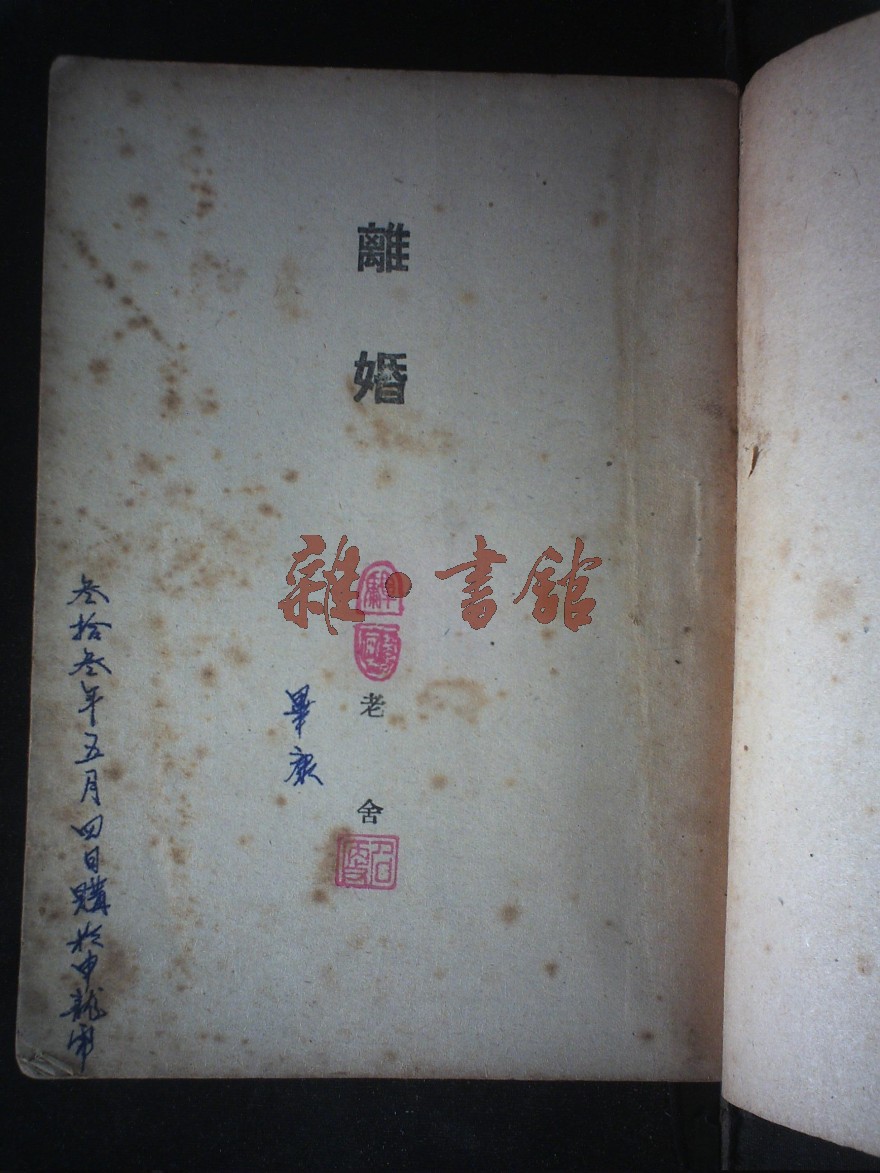 離婚
雜·書館
老舍
畢康
叁拾叁年五月四日購於申龍